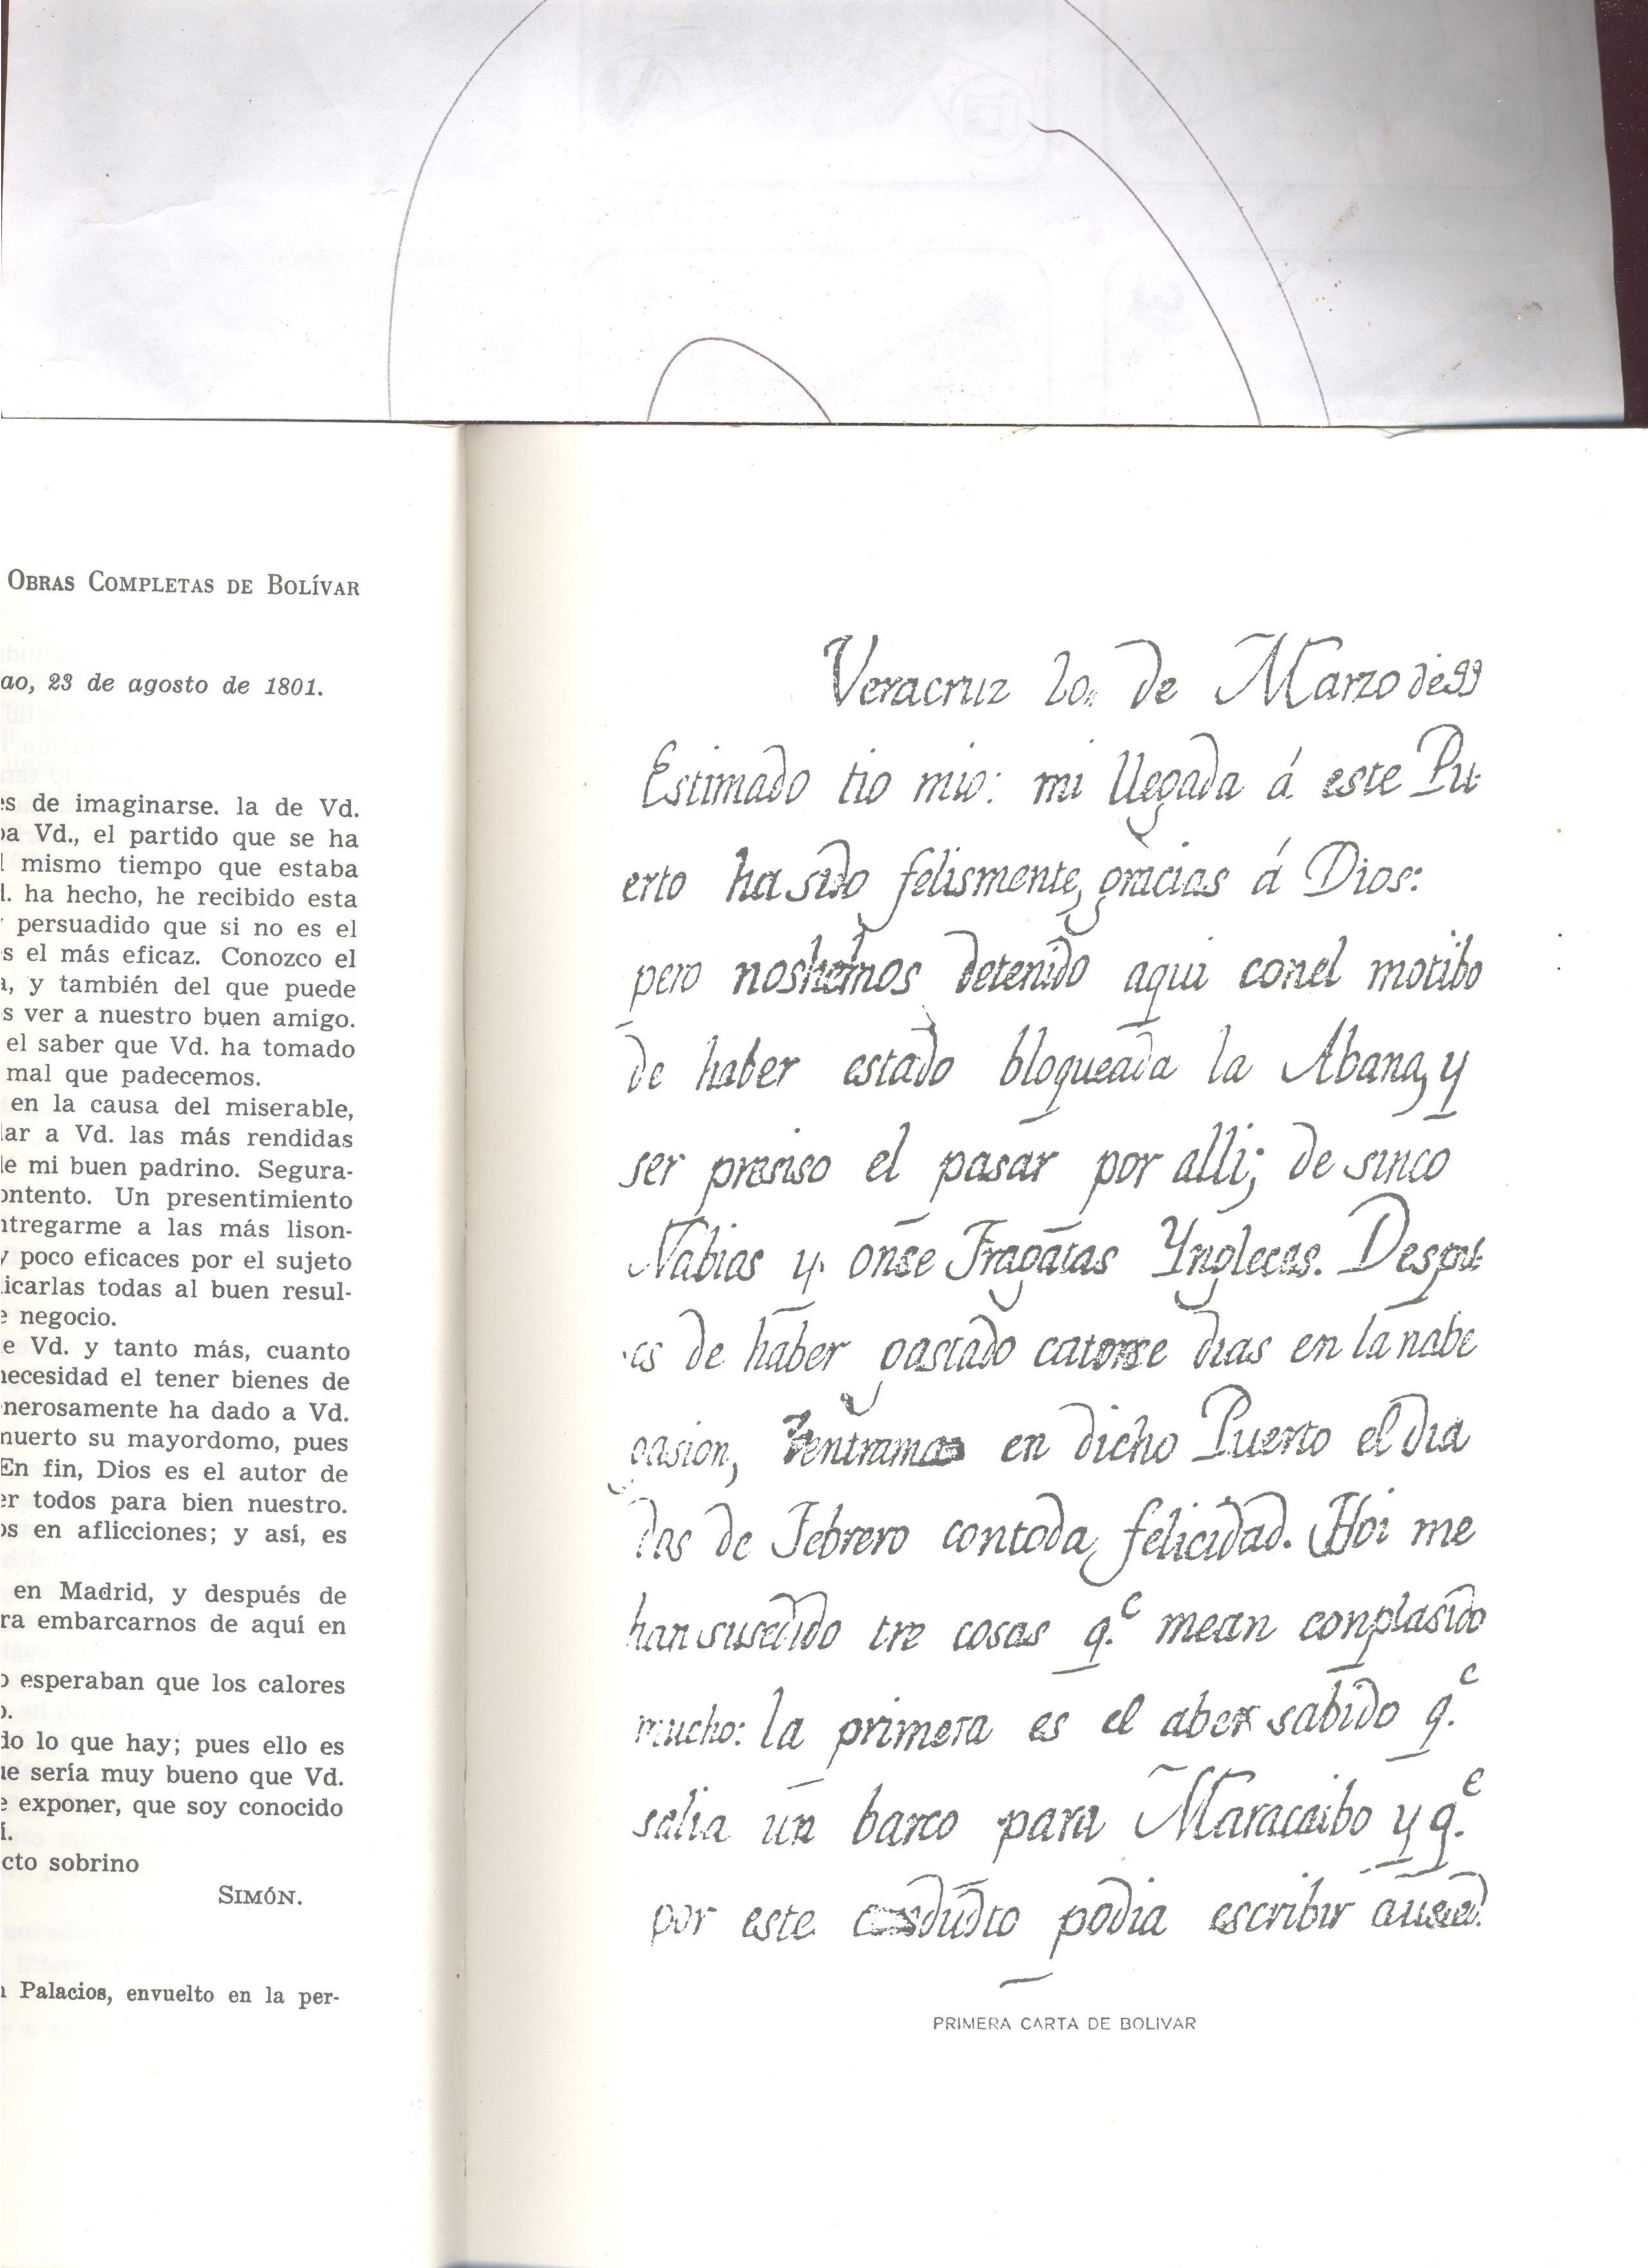 OBRAS COMPLETAS DE BOLÍVAR
ao, 23 de agosto de 1801.
es de imaginarse. la de Vd.
ba Vd., el partido que se ha
l mismo tiempo que estaba
l. ha hecho, he recibido esta
persuadido que si no es el
s el más eficaz. Conozco el
a, y también del que puede
s ver a nuestro buen amigo.
el saber que Vd. ha tomado
mal que padecemos.
en la causa del miserable,
lar a Vd. las más rendidas
de mi buen padrino. Segura-
ontento. Un presentimiento
ntregarme a las más lison-
y poco eficaces por el sujeto
licarlas todas al buen resul-
e negocio.
e Vd. y tanto más, cuanto
necesidad el tener bienes de
nerosamente ha dado a Vd.
muerto su mayordomo, pues
En fin, Dios es el autor de
er todos para bien nuestro.
os en aflicciones; y así, es
en Madrid, y después de
ra embarcarnos de aquí en
o esperaban que los calores
o.
do lo que hay; pues ello es
ue sería muy bueno que Vd.
e exponer, que soy conocido
í.
cto sobrino
SIMÓN.
n Palacios, envuelto en la per-
Veracruz 20,, de Marzo de 99
Estimado tio mio: mi llegada á este Pu-
erto ha sido felismente, gracias á Dios:
pero nos hemos detenido aqui conel motibo
de haber estado bloqueada la Abana, y
ser presiso el pasar por alli; de sinco
Nabios y onse Fragatas Ynglecas. Despu-
es de haber gastado catorse dias en la nabe
gasion, entramos en dicho Puerto el dia
dos de Febrero contoda felicidad. Hoi me
han susedido tre cosas q.e mean conplasido
mucho: la primera es el aber sabido q.e
salia un barco para Maracaibo y q.e
por este condudto podia escribir a usted.
PRIMERA CARTA DE BOLIVAR